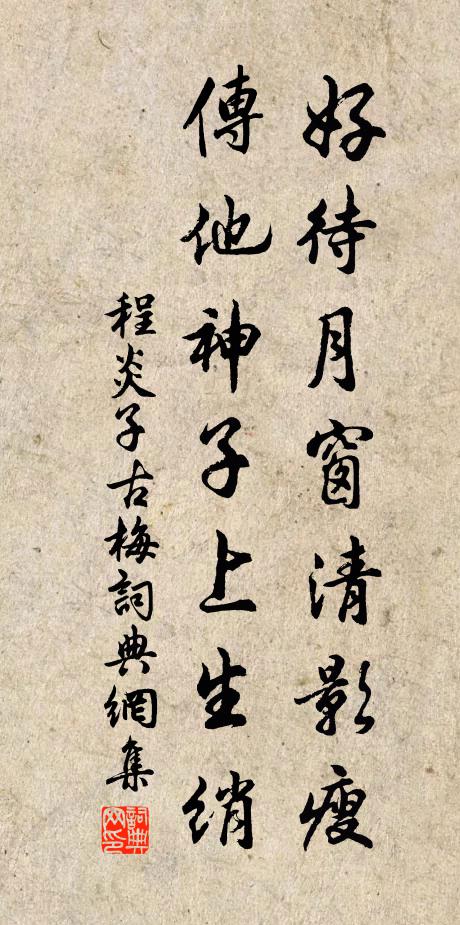 好待月窗清影瘦
傳他神子上生綃
程炎子古梅詞典網集
詞典网印